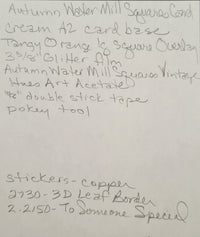 Autumn Water Mill Squares Card
Cream A2 card base
Tangy Orange Square Overlay
3 5/8" Glitter film
Autumn Water Mill Squares Vintage
Hues Art Acetate
1/8" double stick tape
pokey tool
Stickers - copper
2730 - 3D Leaf Border
2-2150 - To Someone Special